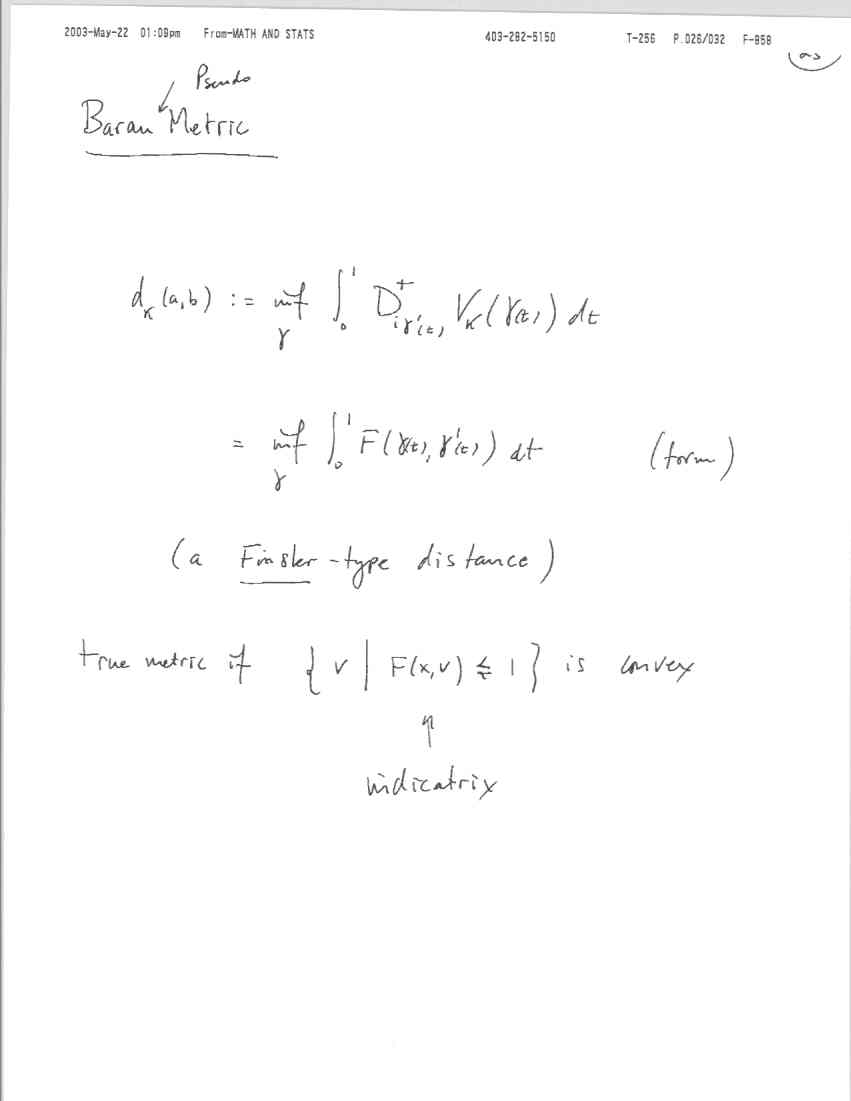 2003-May-22 01:09pm From-MATH AND STATS 403-282-5150 T-256 P.026/032 F-858
Pseudo
Baran Metric
d_K(a,b) := inf_γ ∫_0^1 D^+_{iγ'(t)} V_K(γ(t)) dt
= inf_γ ∫_0^1 F(γ(t), γ'(t)) dt (form)
(a Finsler-type distance)
true metric if { v | F(x,v) ≤ 1 } is convex
↑
indicatrix